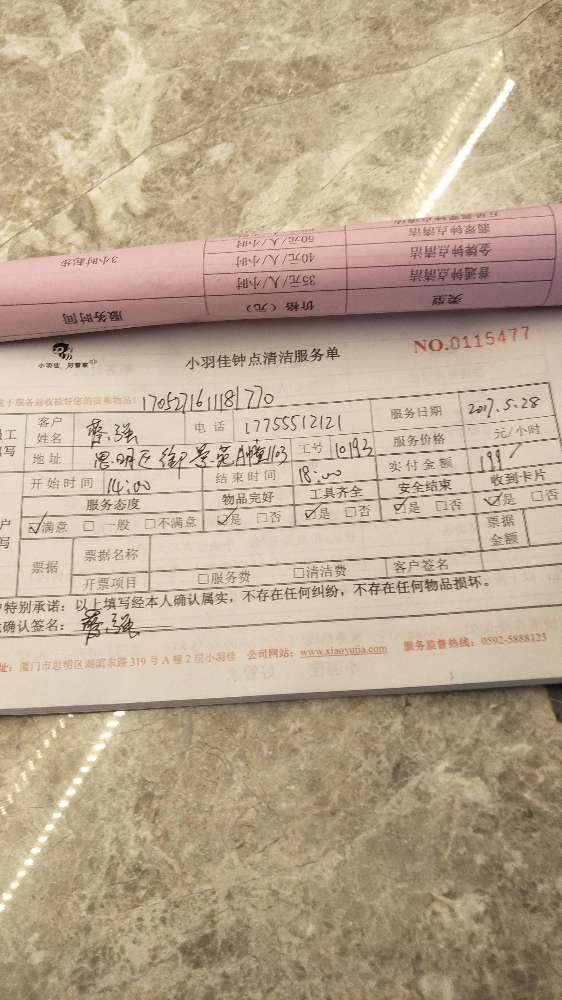 五星翡翠钟点清洁
翡翠钟点清洁 50元/人/小时
金牌钟点清洁 40元/人/小时 3小时起步
普通钟点清洁 35元/人/小时
类型 价格（元） 服务时间
小羽佳 好管家
小羽佳钟点清洁服务单 NO.0115477
于服务前收检好您的贵重物品! 1705271611181770
员工 客户姓名 蔡强 电话 17755512121 服务日期 2017.5.28
填写 地址 思明区御景苑A幢1103 工号 10193 服务价格 元/小时
开始时间 14:00 结束时间 18:00 实付金额 199
服务态度 物品完好 工具齐全 安全结束 收到卡片
☑满意 □一般 □不满意 ☑是 □否 ☑是 □否 ☑是 □否 ☑是 □否
户 写 票据 票据名称 票据金额
开票项目 □服务费 □清洁费 客户签名
户特别承诺：以上填写经本人确认属实，不存在任何纠纷，不存在任何物品损坏。
确认签名：蔡强
址：厦门市思明区湖滨东路319号A幢2层小羽佳 公司网站：www.xiaoyujia.com 服务监督热线：0592-5888123